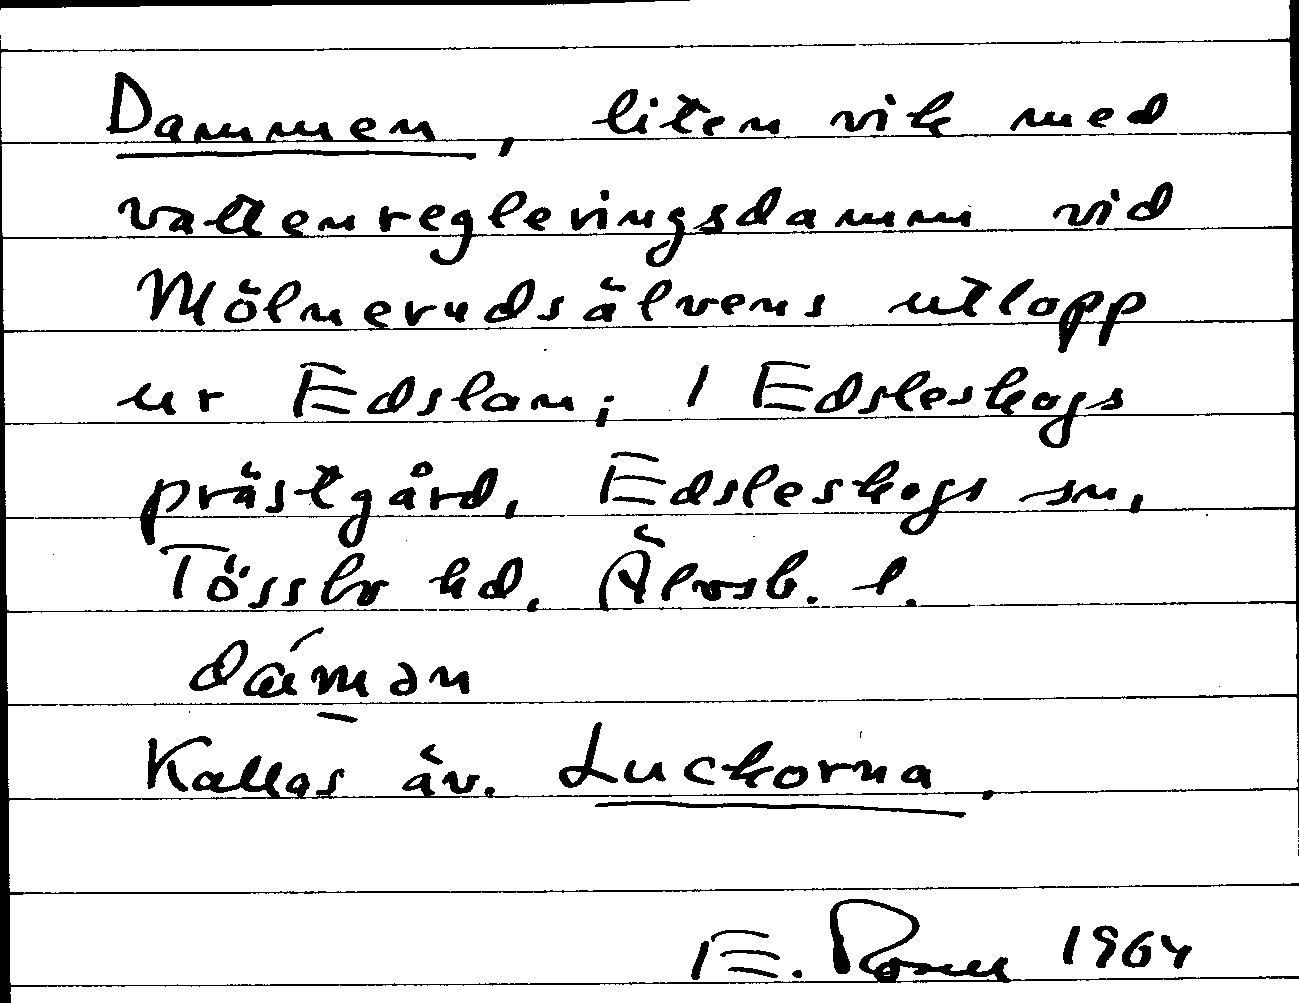 Dammen, liten vik med
vattenregleringsdamm vid
Mölnerudsälvens utlopp
ur Edslan; 1 Edsleskogs
prästgård, Edsleskogs sn,
Tössbo hd. Älvsb. l.
Kallas äv. Luckorna.
E. 1964